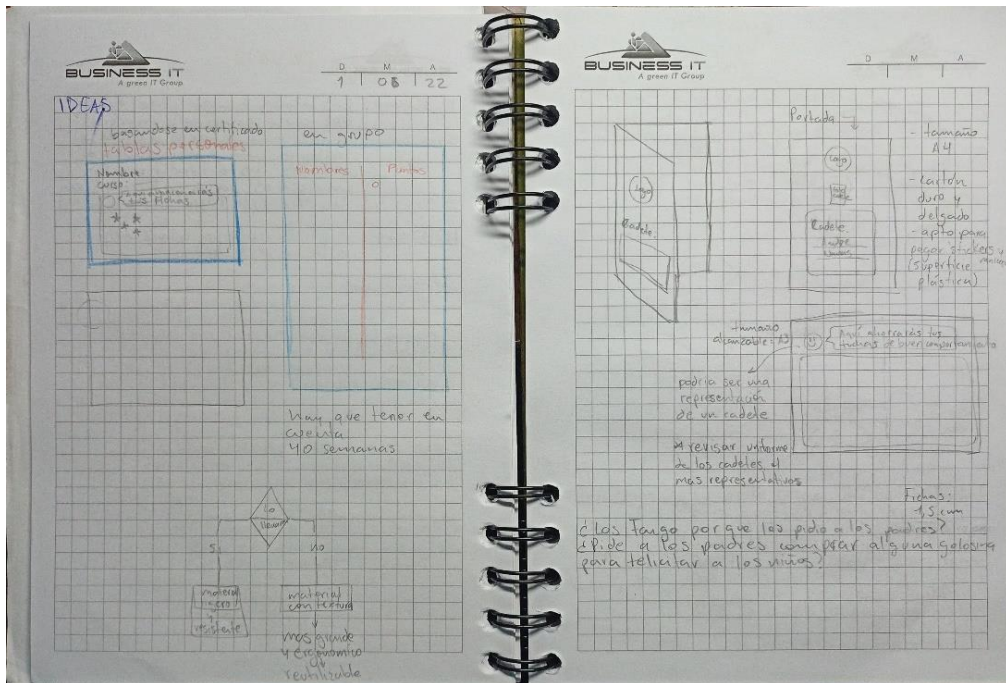 BUSINESS IT
A green IT Group
D M A
1 08 22
IDEAS
basandose en certificado
tablas personales
Nombre
curso:
tus fichas
en grupo
Nombres Puntos
hay que tener en
cuenta
40 semanas
Lo
llevan
Si
no
material
ligero
resistente
material
con textura
mas grande
y ergonomico
reutilizable
BUSINESS IT
A green IT Group
D M A
Portada
Logo
Cadete.
Logo
Cadete.
- tamaño
A4
- cartón
duro y
delgado
- apto para
pegar stickers y
(superficie
plástica)
tamaño
alcanzable: A3
Aquí obtendrás tus
fichas de buen comportamiento
podría ser una
representación
de un cadete
* revisar uniforme
de los cadetes
mas representativos
Fichas:
1,5 cm
¿Los Tango porque los pidio a los padres?
¿Pide a los padres comprar alguna golosina
para felicitar a los niños?